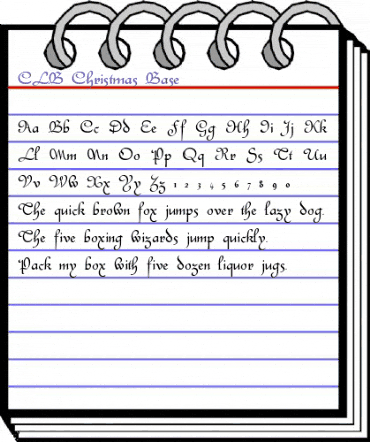 CLB Christmas Base
Aa Bb Cc Dd Ee Ff Gg Hh Ii Jj Kk
Ll Mm Nn Oo Pp Qq Rr Ss Tt Uu
Vv Ww Xx Yy Zz 1 2 3 4 5 6 7 8 9 0
The quick brown fox jumps over the lazy dog.
The five boxing wizards jump quickly.
Pack my box with five dozen liquor jugs.